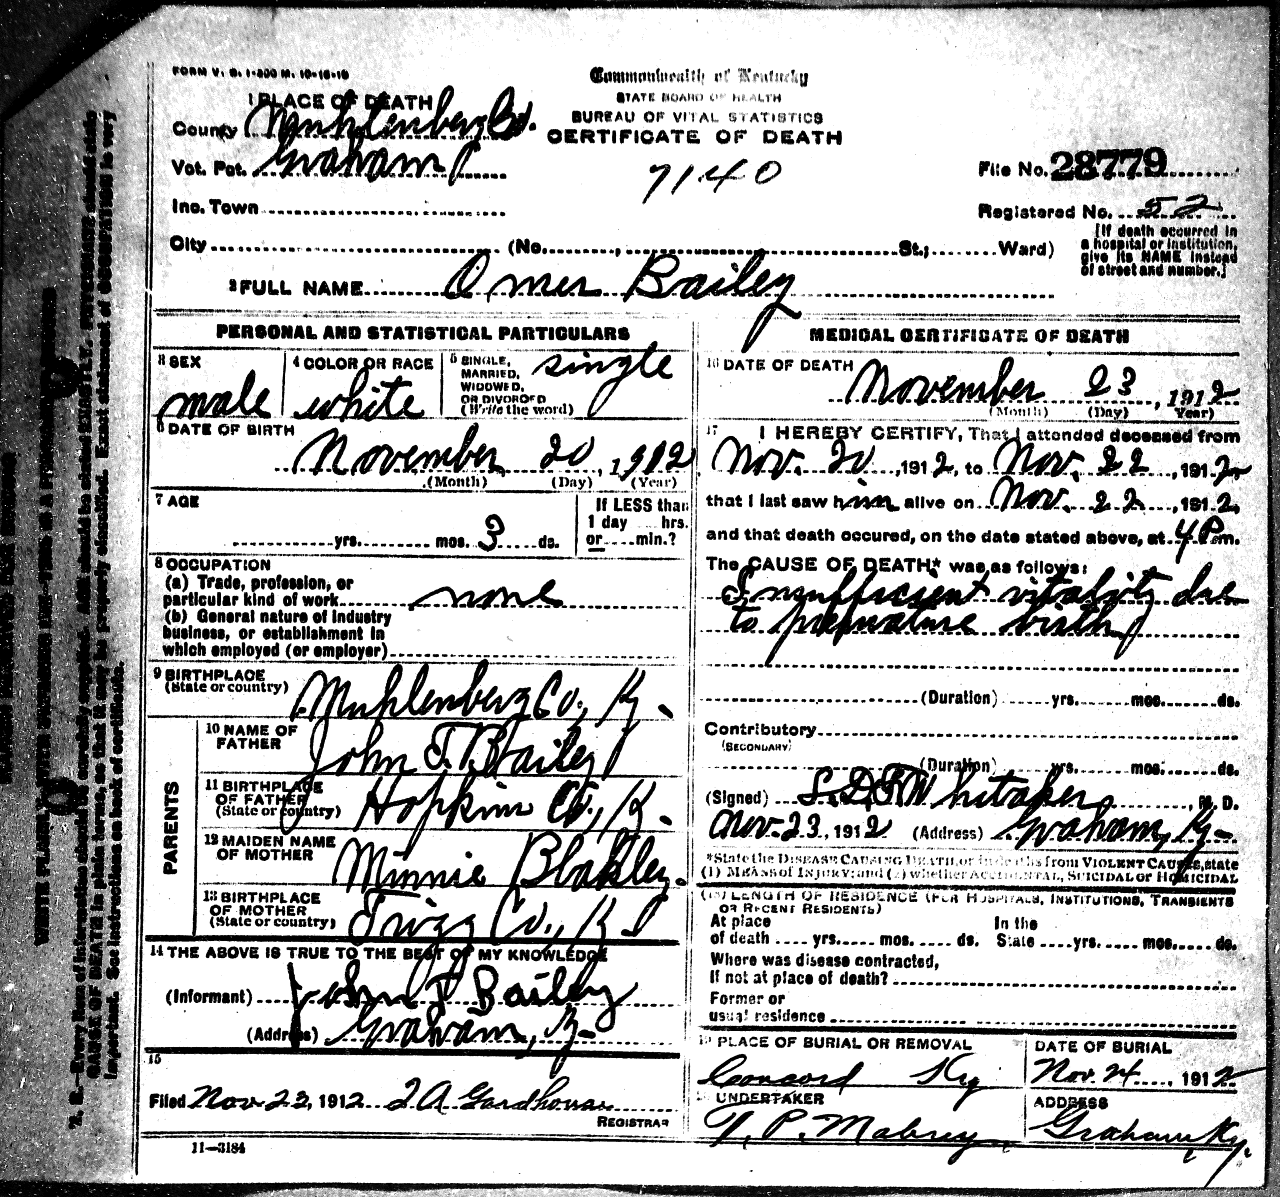 FORM V. S. 1-200 M. 10-16-10
Commonwealth of Kentucky
STATE BOARD OF HEALTH
BUREAU OF VITAL STATISTICS
CERTIFICATE OF DEATH
7140
1 PLACE OF DEATH
County Muhlenberg Co.
Vot. Pct. Graham
Inc. Town
City (No. , St.; Ward)
File No. 28779
Registered No. 52
[If death occurred in
a hospital or institution,
give its NAME instead
of street and number.]
2 FULL NAME Omer Bailey
PERSONAL AND STATISTICAL PARTICULARS
3 SEX
male
4 COLOR OR RACE
white
5 SINGLE, MARRIED, WIDOWED, OR DIVORCED (Write the word)
single
6 DATE OF BIRTH
November 20, 1912
(Month) (Day) (Year)
7 AGE
yrs. mos. 3 ds.
If LESS than
1 day hrs.
or min.?
8 OCCUPATION
(a) Trade, profession, or
particular kind of work none
(b) General nature of industry
business, or establishment in
which employed (or employer)
9 BIRTHPLACE
(State or country) Muhlenberg Co., Ky.
PARENTS
10 NAME OF
FATHER John T. Bailey
11 BIRTHPLACE
OF FATHER
(State or country) Hopkins Co., Ky.
12 MAIDEN NAME
OF MOTHER Minnie Blakley.
13 BIRTHPLACE
OF MOTHER
(State or country) Trigg Co., Ky
14 THE ABOVE IS TRUE TO THE BEST OF MY KNOWLEDGE
(Informant) John T Bailey
(Address) Graham, Ky.
15
Filed Nov 23, 1912 REGISTRAR
11—3184
MEDICAL CERTIFICATE OF DEATH
16 DATE OF DEATH
November 23, 1912
(Month) (Day) (Year)
17 I HEREBY CERTIFY, That I attended deceased from
Nov. 20, 1912, to Nov. 22, 1912,
that I last saw him alive on Nov. 22, 1912,
and that death occured, on the date stated above, at 4 P.m.
The CAUSE OF DEATH* was as follows:
Insufficient vitality due
to premature birth
(Duration) yrs. mos. ds.
Contributory
(SECONDARY)
(Duration) yrs. mos. ds.
(Signed) Whitaker, M. D.
Nov. 23, 1912 (Address) Graham, Ky.
*State the DISEASE CAUSING DEATH, or in deaths from VIOLENT CAUSES, state
(1) MEANS OF INJURY; and (2) whether ACCIDENTAL, SUICIDAL OR HOMICIDAL
(18) LENGTH OF RESIDENCE (FOR HOSPITALS, INSTITUTIONS, TRANSIENTS
OR RECENT RESIDENTS)
At place In the
of death yrs. mos. ds. State yrs. mos. ds.
Where was disease contracted,
If not at place of death?
Former or
usual residence
19 PLACE OF BURIAL OR REMOVAL
Concord Ky
DATE OF BURIAL
Nov. 24, 1912
UNDERTAKER
T. P. Mabrey
ADDRESS
Graham, Ky.